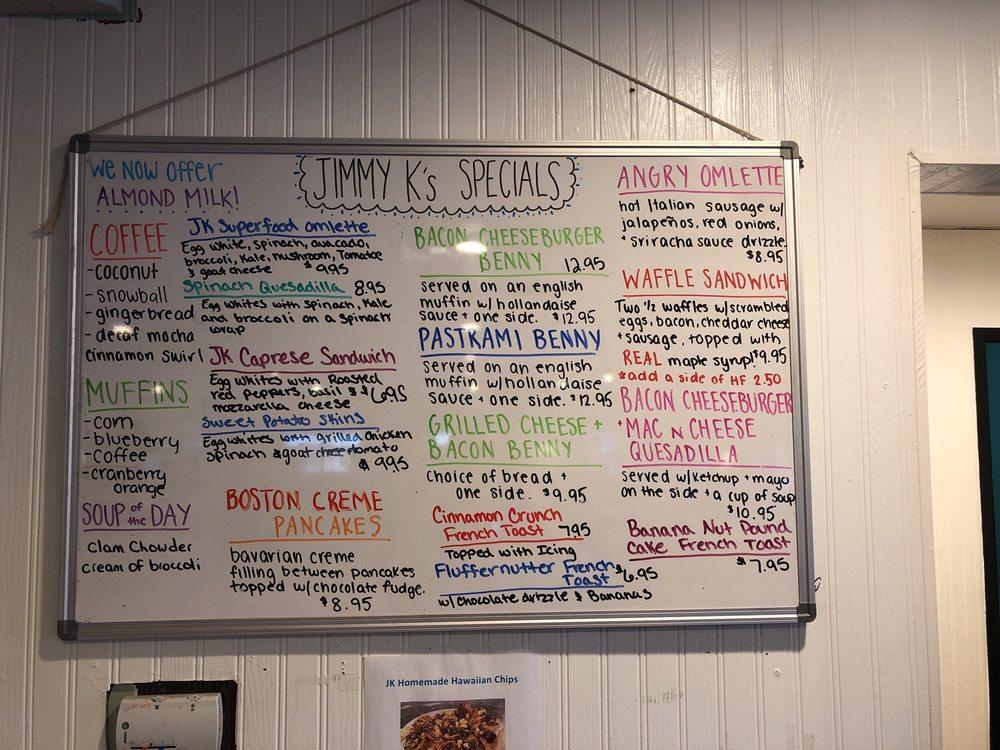 We now offer
ALMOND MILK!
COFFEE
-coconut
- snowball
- gingerbread
- decaf mocha
cinnamon swirl
MUFFINS
-corn
-blueberry
-coffee
-cranberry
orange
SOUP of the DAY
Clam Chowder
cream of broccoli
JIMMY K's SPECIALS
JK Superfood omlette
Egg white, spinach, avacado,
broccoli, Kale, mushroom, Tomatoe
& goat cheese $ 9.95
Spinach Quesadilla 8.95
Egg whites with spinach, Kale
and broccoli on a spinach
wrap
JK Caprese Sandwich
Egg whites with Roasted
red peppers, basil & $6.95
mozzarella cheese
Sweet Potato Skins
Egg whites with grilled chicken
spinach & goat cheese tomato
$ 9.95
BOSTON CREME
PANCAKES
bavarian creme
filling between pancakes
topped w/chocolate fudge.
$8.95
BACON CHEESEBURGER
BENNY 12.95
served on an english
muffin w/ hollandaise
sauce + one side. $12.95
PASTRAMI BENNY
served on an english
muffin w/hollandaise
sauce + one side. $12.95
GRILLED CHEESE +
BACON BENNY
Choice of bread +
one side. $9.95
Cinnamon Crunch
French Toast 7.95
Topped with Icing
Fluffernutter French
Toast $6.95
w/chocolate drizzle & Bananas
ANGRY OMLETTE
hot Italian sausage w/
jalapeños, red onions,
+ sriracha sauce drizzle.
$8.95
WAFFLE SANDWICH
Two ½ waffles w/scrambled
eggs, bacon, cheddar cheese
+ sausage, topped with
REAL maple syrup! $9.95
*add a side of HF 2.50
BACON CHEESEBURGER
+MAC N CHEESE
QUESADILLA
served w/ketchup + mayo
on the side + a cup of soup
$10.95
Banana Nut Pound
cake French Toast
$7.95
JK Homemade Hawaiian Chips